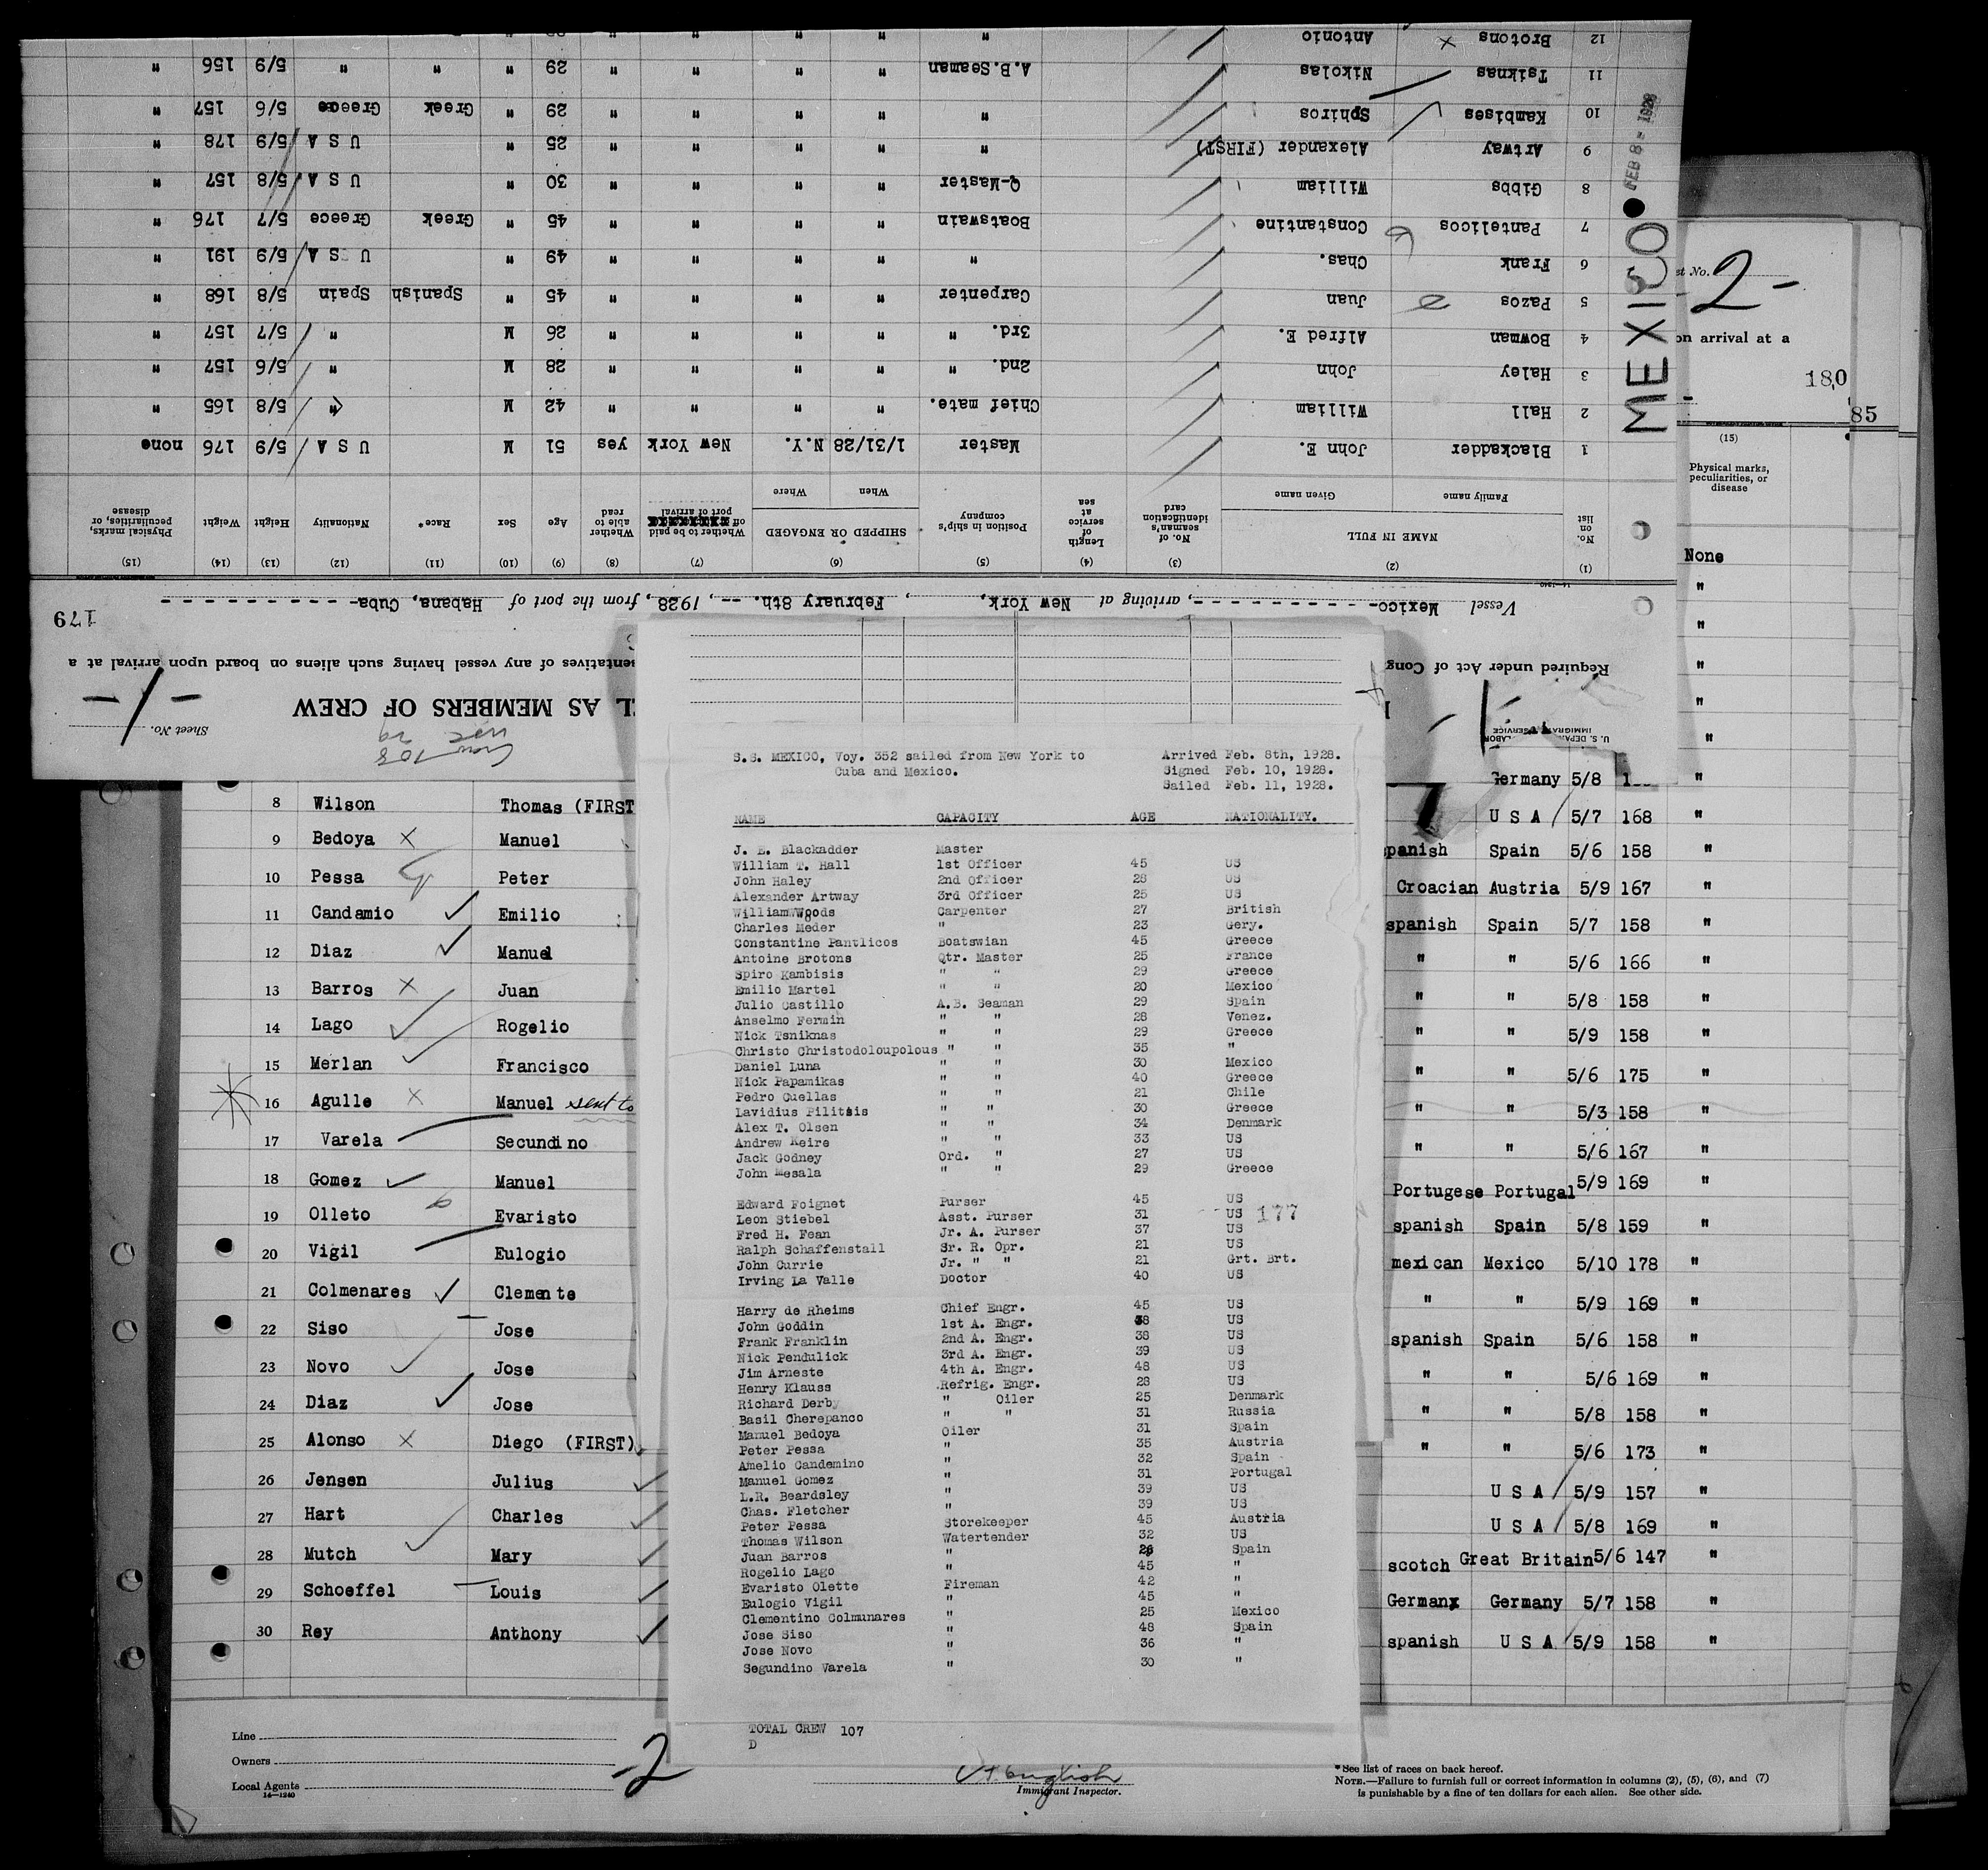 Sheet No. -1-
L AS MEMBERS OF CREW
U. S. DEPA
IMMIGRA SERVICE
Required under Act of Cong
sentatives of any vessel having such aliens on board upon arrival at a
179
Vessel Mexico- - - - - - - - - - -, arriving at New York, , February 8th. --, 1928, from the port of Habana, Cuba- - - - - - - - - -
14-1240
(1) (2) (3) (4) (5) (6) (7) (8) (9) (10) (11) (12) (13) (14) (15)
No. on list NAME IN FULL No. of seaman's identification card Length of service at sea Position in ship's company SHIPPED OR ENGAGED Whether to be paid off port of arrival Whether able to read Age Sex Race* Nationality Height Weight Physical marks, peculiarities, or disease
Family name Given name When Where
1 Blackadder John E. Master 1/31/28 N.Y. New York yes 51 M U S A 5/9 176 none
2 Hall William Chief mate. " " " " 42 M " 5/8 165 "
3 Haley John 2nd. " " " " " 28 M " 5/6 157 "
4 Bowman Alfred E. 3rd. " " " " " 26 M " 5/7 157 "
5 Pazos Juan Carpenter " " " " 45 " Spanish Spain 5/8 168 "
6 Frank Chas. " " " " " 49 " U S A 5/9 191 "
7 Pantelicos Constantine Boatswain " " " " 45 " Greek Greece 5/7 176 "
8 Gibbs William Q-Master " " " " 30 " U S A 5/8 157 "
9 Artway Alexander (FIRST) " " " " " 25 " U S A 5/9 178 "
10 Kambises Sphiros " " " " " 29 " Greek Greece 5/6 157 "
11 Tsiknas Nikolas A.B.Seaman " " " " 29 " " " 5/9 156 "
12 Brotons Antonio "
MEXICO
FEB 8 - 1928
st No. -2-
on arrival at a
180
85
(15)
Physical marks, peculiarities, or disease
None
"
"
"
"
"
Germany 5/8 "
8 Wilson Thomas (FIRST U S A 5/7 168 "
9 Bedoya Manuel panish Spain 5/6 158 "
10 Pessa Peter Croacian Austria 5/9 167 "
11 Candamio Emilio spanish Spain 5/7 158 "
12 Diaz Manuel " " 5/6 166 "
13 Barros Juan " " 5/8 158 "
14 Lago Rogelio " " 5/9 158 "
15 Merlan Francisco " " 5/6 175 "
16 Agulle Manuel sent to " " 5/3 158 "
17 Varela Secundino " " 5/6 167 "
18 Gomez Manuel Portugese Portugal 5/9 169 "
19 Olleto Evaristo spanish Spain 5/8 159 "
20 Vigil Eulogio mexican Mexico 5/10 178 "
21 Colmenares Clemente " " 5/9 169 "
22 Siso Jose spanish Spain 5/6 158 "
23 Novo Jose " " 5/6 169 "
24 Diaz Jose " " 5/8 158 "
25 Alonso Diego (FIRST) " " 5/6 173 "
26 Jensen Julius U S A 5/9 157 "
27 Hart Charles U S A 5/8 169 "
28 Mutch Mary scotch Great Britain 5/6 147 "
29 Schoeffel Louis German Germany 5/7 158 "
30 Rey Anthony spanish U S A 5/9 158 "
S.S. MEXICO, Voy. 352 sailed from New York to Arrived Feb. 8th, 1928.
Cuba and Mexico. Signed Feb. 10, 1928.
Sailed Feb. 11, 1928.
NAME CAPACITY AGE NATIONALITY.
J. E. Blackadder Master
William T. Hall 1st Officer 45 US
John Haley 2nd Officer 28 US
Alexander Artway 3rd Officer 25 US
William Woods Carpenter 27 British
Charles Meder " 23 Gery.
Constantine Pantlicos Boatswian 45 Greece
Antoine Brotons Qtr. Master 25 France
Spiro Kambisis " " 29 Greece
Emilio Martel " " 20 Mexico
Julio Castillo A.B. Seaman 29 Spain
Anselmo Fermin " " 28 Venez.
Nick Tsniknas " " 29 Greece
Christo Christodoloupolous " " 35 "
Daniel Luna " " 30 Mexico
Nick Papamikas " " 40 Greece
Pedro Cuellas " " 21 Chile
Lavidius Pilitsis " " 30 Greece
Alex T. Olsen " " 34 Denmark
Andrew Keire " " 33 US
Jack Godney Ord. " 27 US
John Mesala " " 29 Greece
Edward Foignet Purser 45 US
Leon Stiebel Asst. Purser 31 US 177
Fred H. Fean Jr. A. Purser 37 US
Ralph Schaffenstall Sr. R. Opr. 21 US
John Currie Jr. " " 21 Grt. Brt.
Irving La Valle Doctor 40 US
Harry de Rheims Chief Engr. 45 US
John Goddin 1st A. Engr. 38 US
Frank Franklin 2nd A. Engr. 38 US
Nick Pendulick 3rd A. Engr. 39 US
Jim Arneste 4th A. Engr. 48 US
Henry Klauss Refrig. Engr. 28 US
Richard Derby " Oiler 25 Denmark
Basil Cherepanco " " 31 Russia
Manuel Bedoya Oiler 31 Spain
Peter Pessa " 35 Austria
Amelio Candemino " 32 Spain
Manuel Gomez " 31 Portugal
L.R. Beardsley " 39 US
Chas. Fletcher " 39 US
Peter Pessa Storekeeper 45 Austria
Thomas Wilson Watertender 32 US
Juan Barros " 26 Spain
Rogelio Lago " 45 "
Evaristo Olette Fireman 42 "
Eulogio Vigil " 45 "
Clementino Colmunares " 25 Mexico
Jose Siso " 48 Spain
Jose Novo " 36 "
Segundino Varela " 30 "
TOTAL CREW 107
D
Line
Owners
Local Agents
14-1240
-2
Immigrant Inspector.
*See list of races on back hereof.
NOTE.—Failure to furnish full or correct information in columns (2), (5), (6), and (7)
is punishable by a fine of ten dollars for each alien. See other side.